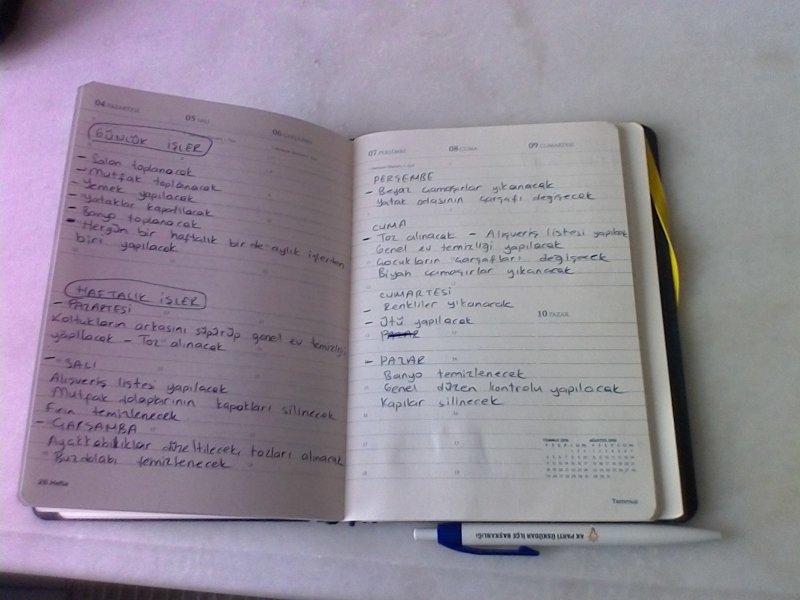 04 PAZARTESİ
05 SALI
06 ÇARŞAMBA
GÜNLÜK İŞLER
- Salon toplanacak
- Mutfak toplanacak
- Yemek yapılacak
- Yataklar kapatılacak
- Banyo toplanacak
- Hergün bir haftalık bir de aylık işlerden
biri yapılacak
HAFTALIK İŞLER
- PAZARTESİ
Koltukların arkasını süpürüp genel ev temizliği
yapılacak - Toz alınacak
- SALI
Alışveriş listesi yapılacak
Mutfak dolaplarının kapakları silinecek
Fırın temizlenecek
- ÇARŞAMBA
Ayakkabılıklar düzeltilecek, tozları alınacak
- Buzdolabı temizlenecek
26. Hafta
07 PERŞEMBE
08 CUMA
09 CUMARTESİ
PERŞEMBE
- Beyaz çamaşırlar yıkanacak
Yatak odasının çarşafı değişecek
CUMA
- Toz alınacak - Alışveriş listesi yapılacak
Genel ev temizliği yapılacak
Çocukların çarşafları değişecek
Siyah çamaşırlar yıkanacak
CUMARTESİ
- Renkliler yıkanacak
- Ütü yapılacak
10 PAZAR
- PAZAR
Banyo temizlenecek
Genel düzen kontrolu yapılacak
Kapılar silinecek
TEMMUZ 2016
AĞUSTOS 2016
Temmuz
AK PARTİ ÜSKÜDAR İLÇE BAŞKANLIĞI